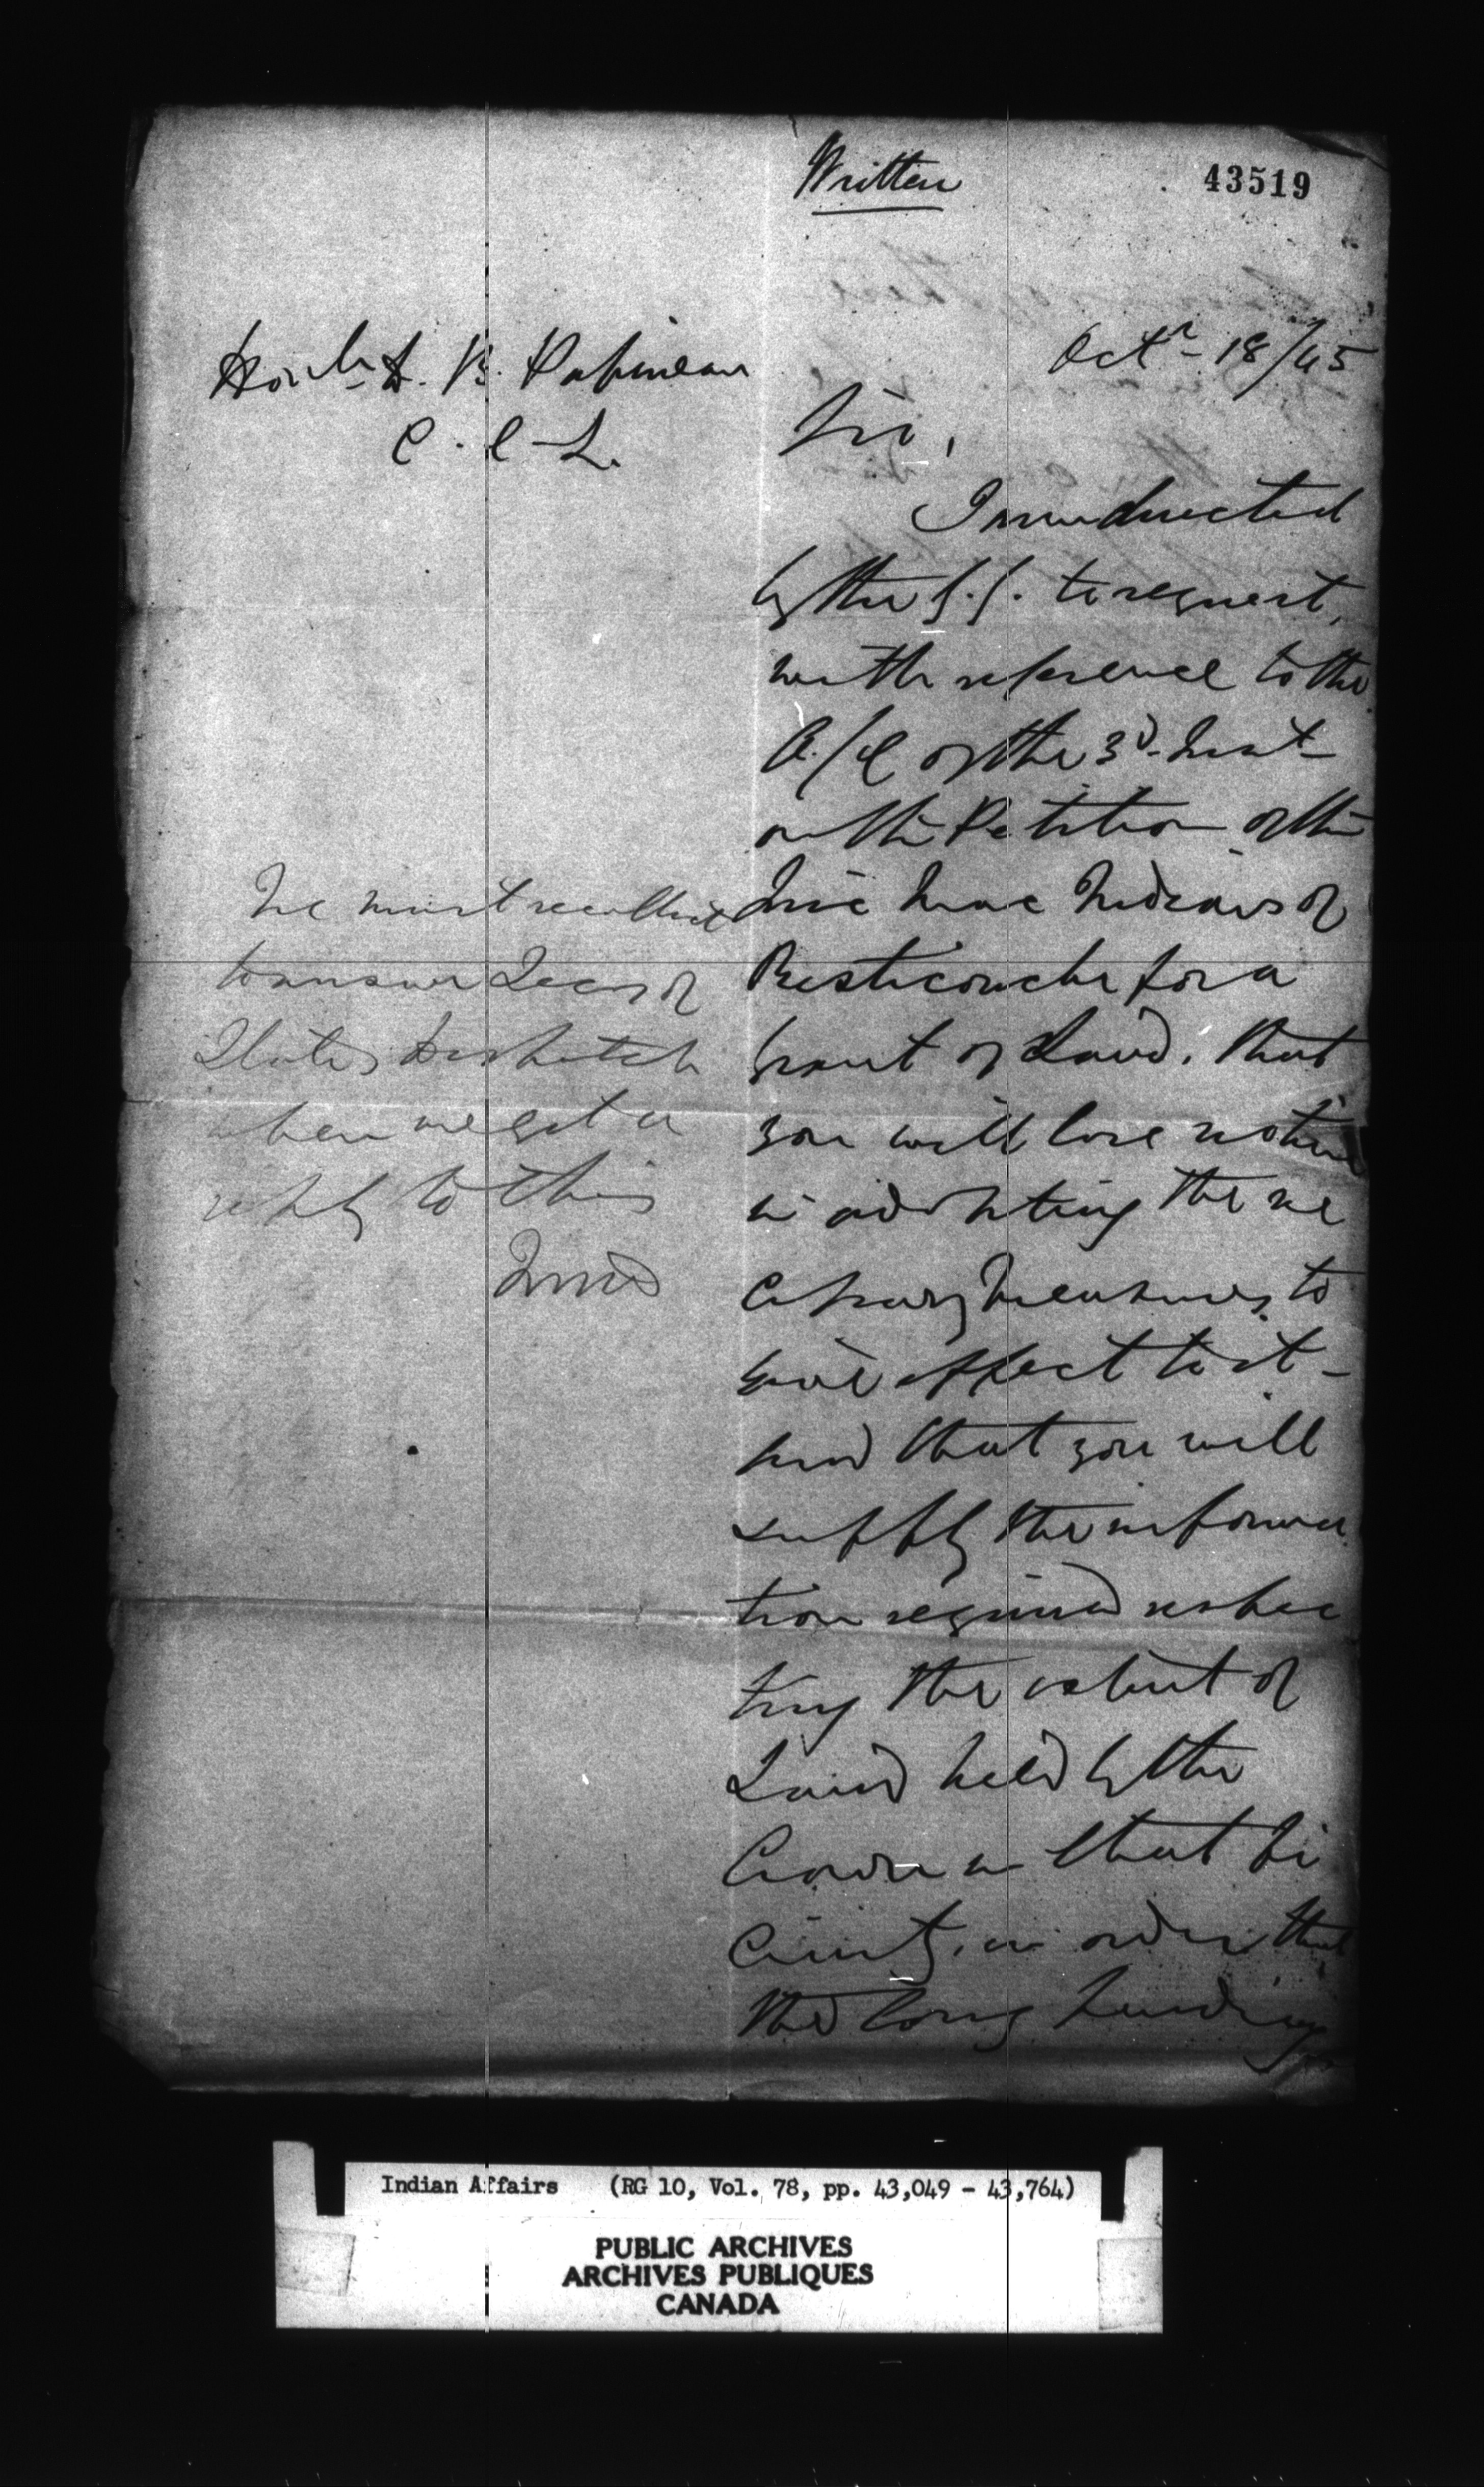 Written
43519
Octr 18/45
Honble D. B. Papineau
C. C. L.
Sir,
I am directed
by the G. G. to request,
with reference to the
O/C of the 3d Inst
on the Petition of the
Mic Mac Indians of
Restigouche for a
Grant of Land, that
you will lose no time
in adopting the ne
cessary measures to
give effect to it -
and that you will
supply the informa
tion required respec
ting the extent of
Land held by the
Crown in that vi
cinity, in order that
the long pending
We must recollect
to answer Secy of
State's Despatch
when we get a
reply to this
Indian Affairs (RG 10, Vol. 78, pp. 43,049 - 43,764)
PUBLIC ARCHIVES
ARCHIVES PUBLIQUES
CANADA